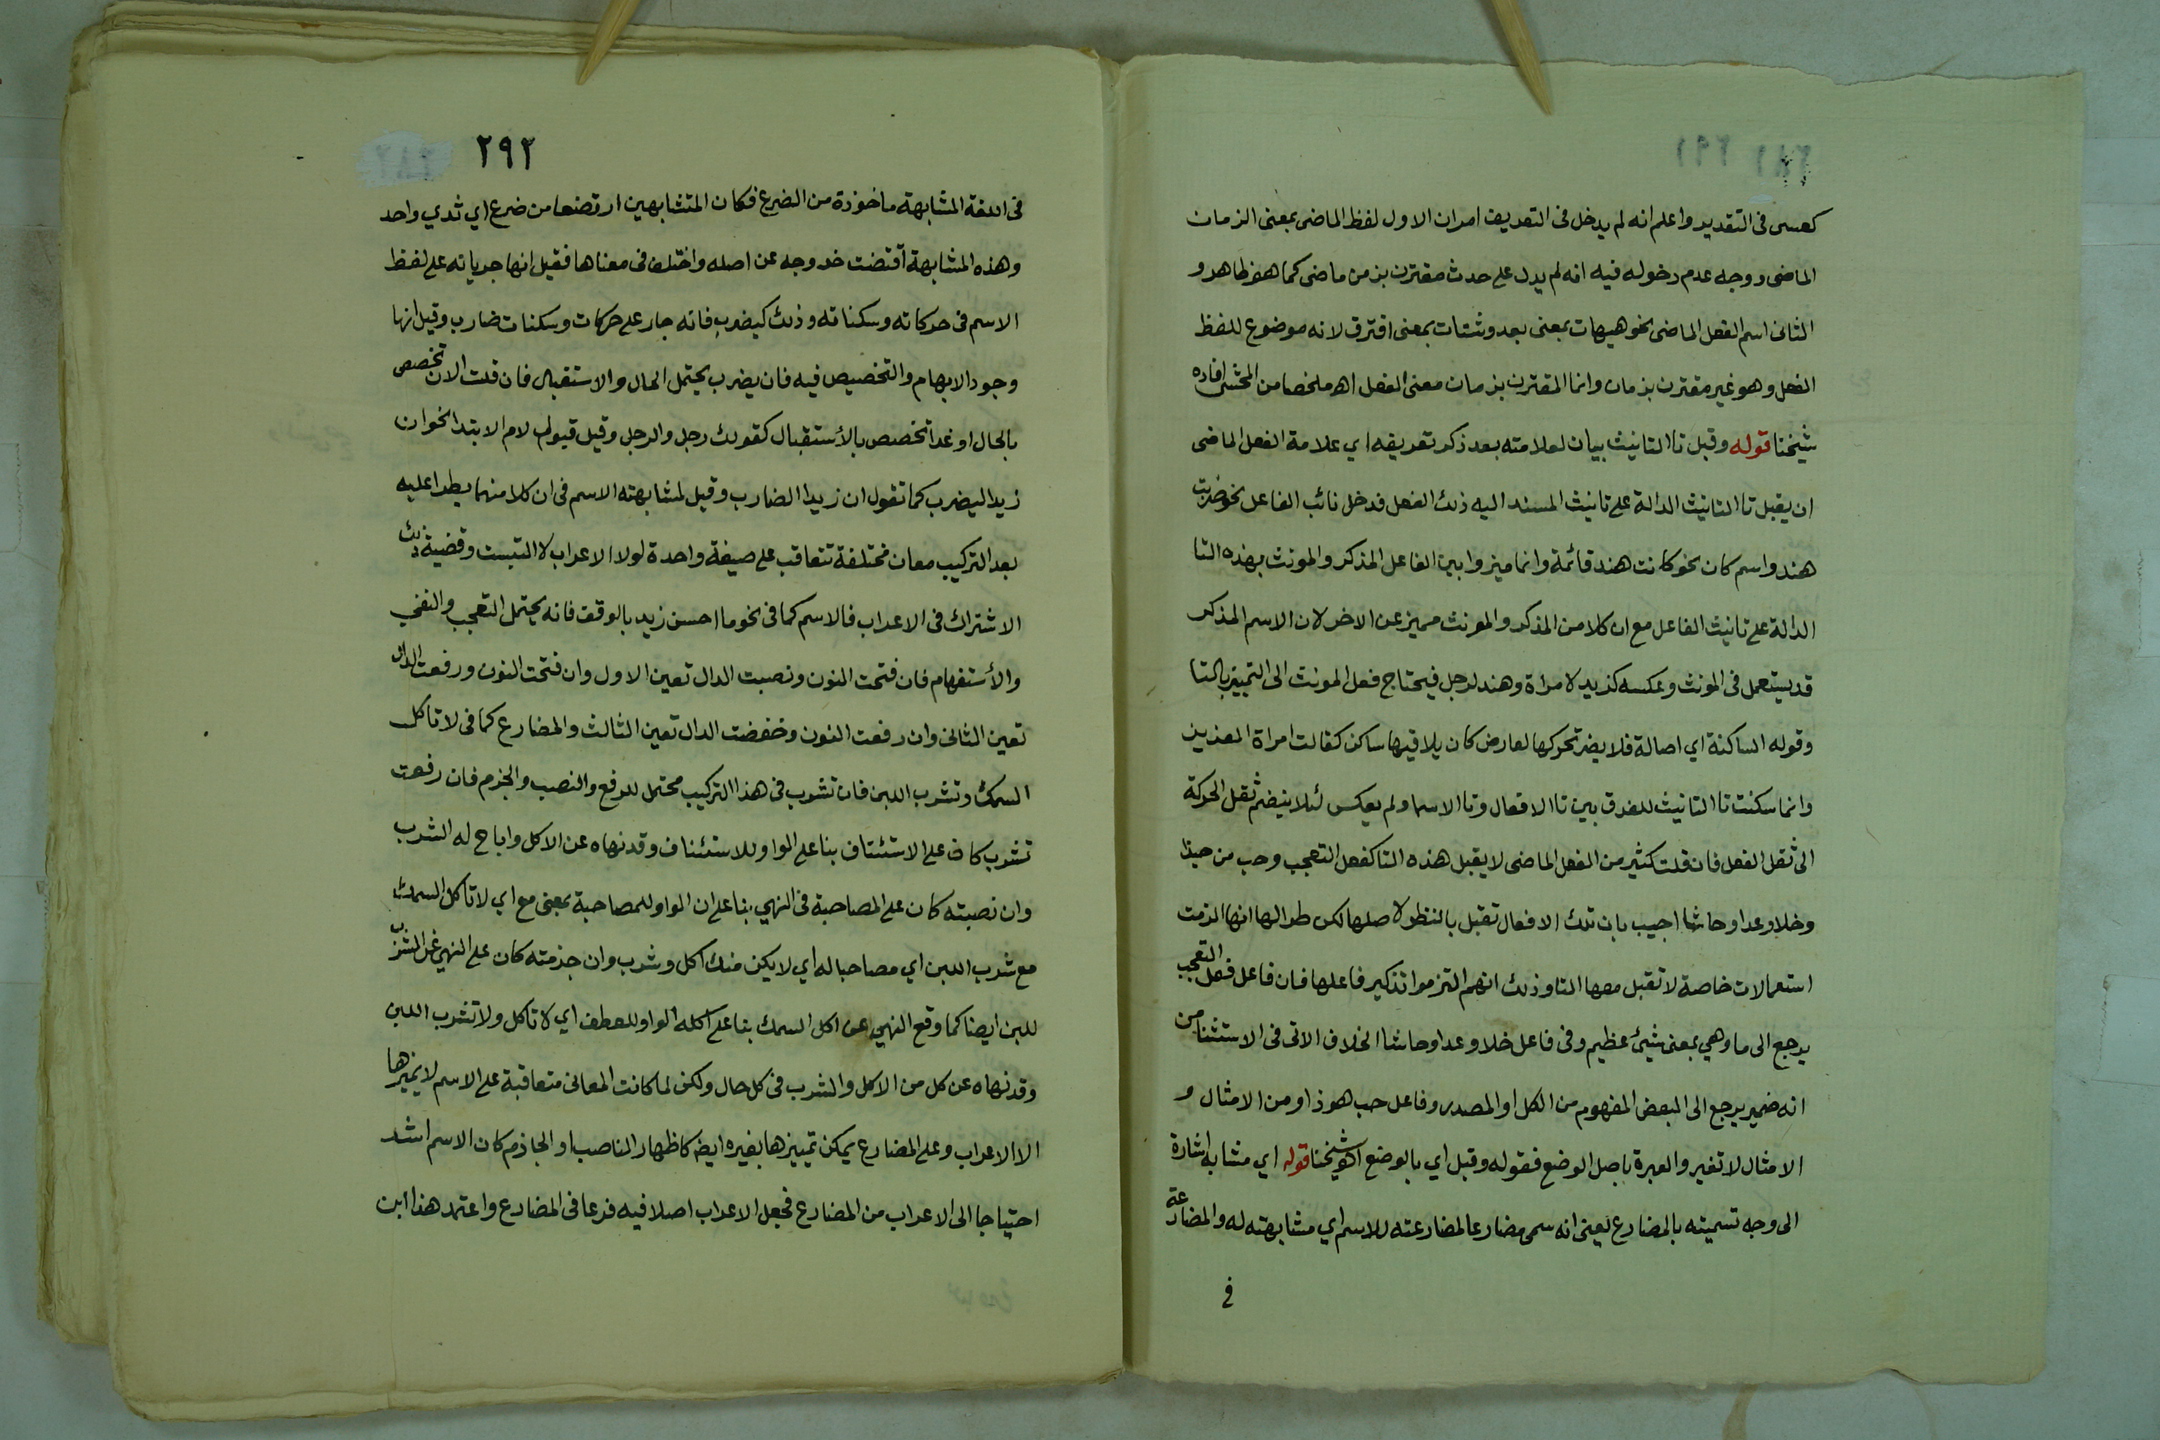 ٢٩١
كعسى فى التقدير واعلم انه لم يدخل فى التعريف امران الاول لفظ الماضى بمعنى الزمان
الماضى ووجه عدم دخوله فيه انه لم يدل على حدث مقترن بزمن ماضى كما هو ظاهر و
الثانى اسم الفعل الماضى نحو هيهات بمعنى بعد وشتات بمعنى افترق لانه موضوع للفظ
الفعل وهو غير مقترن بزمان وانما المقترن بزمان معنى الفعل اهـ ملخصا من المحشى افاده
شيخنا قوله وقبل تا التانيث بيان لعلامته بعد ذكر تعريفه اي علامة الفعل الماضى
ان يقبل تا التانيث الدالة على تانيث المسند اليه ذلك الفعل فدخل نائب الفاعل نحو ضربت
هند واسم كان نحو كانت هند قائمة وانما ميزوا بين الفاعل المذكر والمونث بهذه التا
الدالة على تانيث الفاعل مع ان كلا من المذكر والمونث مميز عن الاخر لان الاسم المذكر
قد يستعمل فى المونث وعكسه كزيد لامراة وهند لرجل فيحتاج فعل المونث الى التمييز بالتا
وقوله الساكنة اي اصالة فلا يضر تحركها لعارض كان يلاقيها ساكن كقالت امراة العزيز
وانما سكنت تا التانيث للفرق بين تا الافعال وتا الاسما ولم يعكس لئلا ينضم ثقل الحركة
الى ثقل الفعل فان قلت كثير من الفعل الماضى لا يقبل هذه التا كفعل التعجب وحب من حبذا
وخلا وعدا وحاشا اجيب بان تلك الافعال تقبل بالنظر لاصلها لكن طرا لها انها الزمت
استعمالات خاصة لا تقبل معها التا وذلك انهم التزموا تذكير فاعلها فان فاعل فعل التعجب
يرجع الى ما وهي بمعنى شيئ عظيم وفى فاعل خلا وعدا وحاشا الخلاف الاتى فى الاستثنا من
انه ضمير يرجع الى البعض المفهوم من الكل او المصدر وفاعل حب هو ذا ومن الامثال و
الامثال لا تغير والعبرة باصل الوضع فقوله وقبل اي بالوضع اهـ شيخنا قوله اي مشابه اشارة
الى وجه تسميته بالمضارع يعنى انه سمى مضارعا لمضارعته للاسم اي مشابهته له والمضارعة
فى
٢٩٢
فى اللغة المشابهة ماخوذة من الضرع فكان المتشابهين ارتضعا من ضرع اي ثدي واحد
وهذه المشابهة أقتضت خروجه عن اصله واختلف فى معناها فقيل انها جرياته على لفظ
الاسم فى حركاته وسكناته وذلك كيضرب فانه جار على حركات وسكنات ضارب وقيل انها
وجود الابهام والتخصيص فيه فان يضرب يحتمل الحال والاستقبال فان قلت الان تخصص
بالحال او غدا تخصص بالأستقبال كقولك رجل والرجل وقيل قبولها لام الابتدا نحو ان
زيدا ليضرب كما تقول ان زيدا الضارب وقيل لمشابهته الاسم فى ان كلا منهما يطرا عليه
بعد التركيب معان مختلفة تتعاقب على صيغة واحدة لولا الاعراب لالتبست وقضية ذلك
الاشتراك فى الاعراب فالاسم كما فى نحو ما احسن زيد بالوقف فانه يحتمل التعجب والنفي
والأستفهام فان فتحت النون ونصبت الدال تعين الاول وان فتحت النون ورفعت الدال
تعين الثانى وان رفعت النون وخفضت الدال تعين الثالث والمضارع كما فى لا تاكل
السمك وتشرب اللبن فان تشرب فى هذا التركيب محتمل للرفع والنصب والجزم فان رفعت
تشرب كان على الاستئناف بنا على الواو للاستئناف وقد نهاه عن الاكل واباح له الشرب
وان نصبته كان على المصاحبة فى النهي بنا على ان الواو للمصاحبة بمعنى مع اي لا تاكل السمك
مع شرب اللبن اي مصاحبا له اي لا يكن منك اكل وشرب وان جذمته كان على النهي عن الشرب
للبن ايضا كما وقع النهي عن اكل السمك بنا على اكله الواو للعطف اي لا تاكل ولا تشرب اللبن
وقد نهاه عن كل من الاكل والشرب فى كل حال ولكن لما كانت المعانى متعاقبة على الاسم لا يميزها
الا الاعراب وعلى المضارع يمكن تمييزها بغيره ايضا كاظهار الناصب او الجاذم كان الاسم اشد
احتياجا الى الاعراب من المضارع فجعل الاعراب اصلا فيه فرعا فى المضارع واعتمد هذا ابن